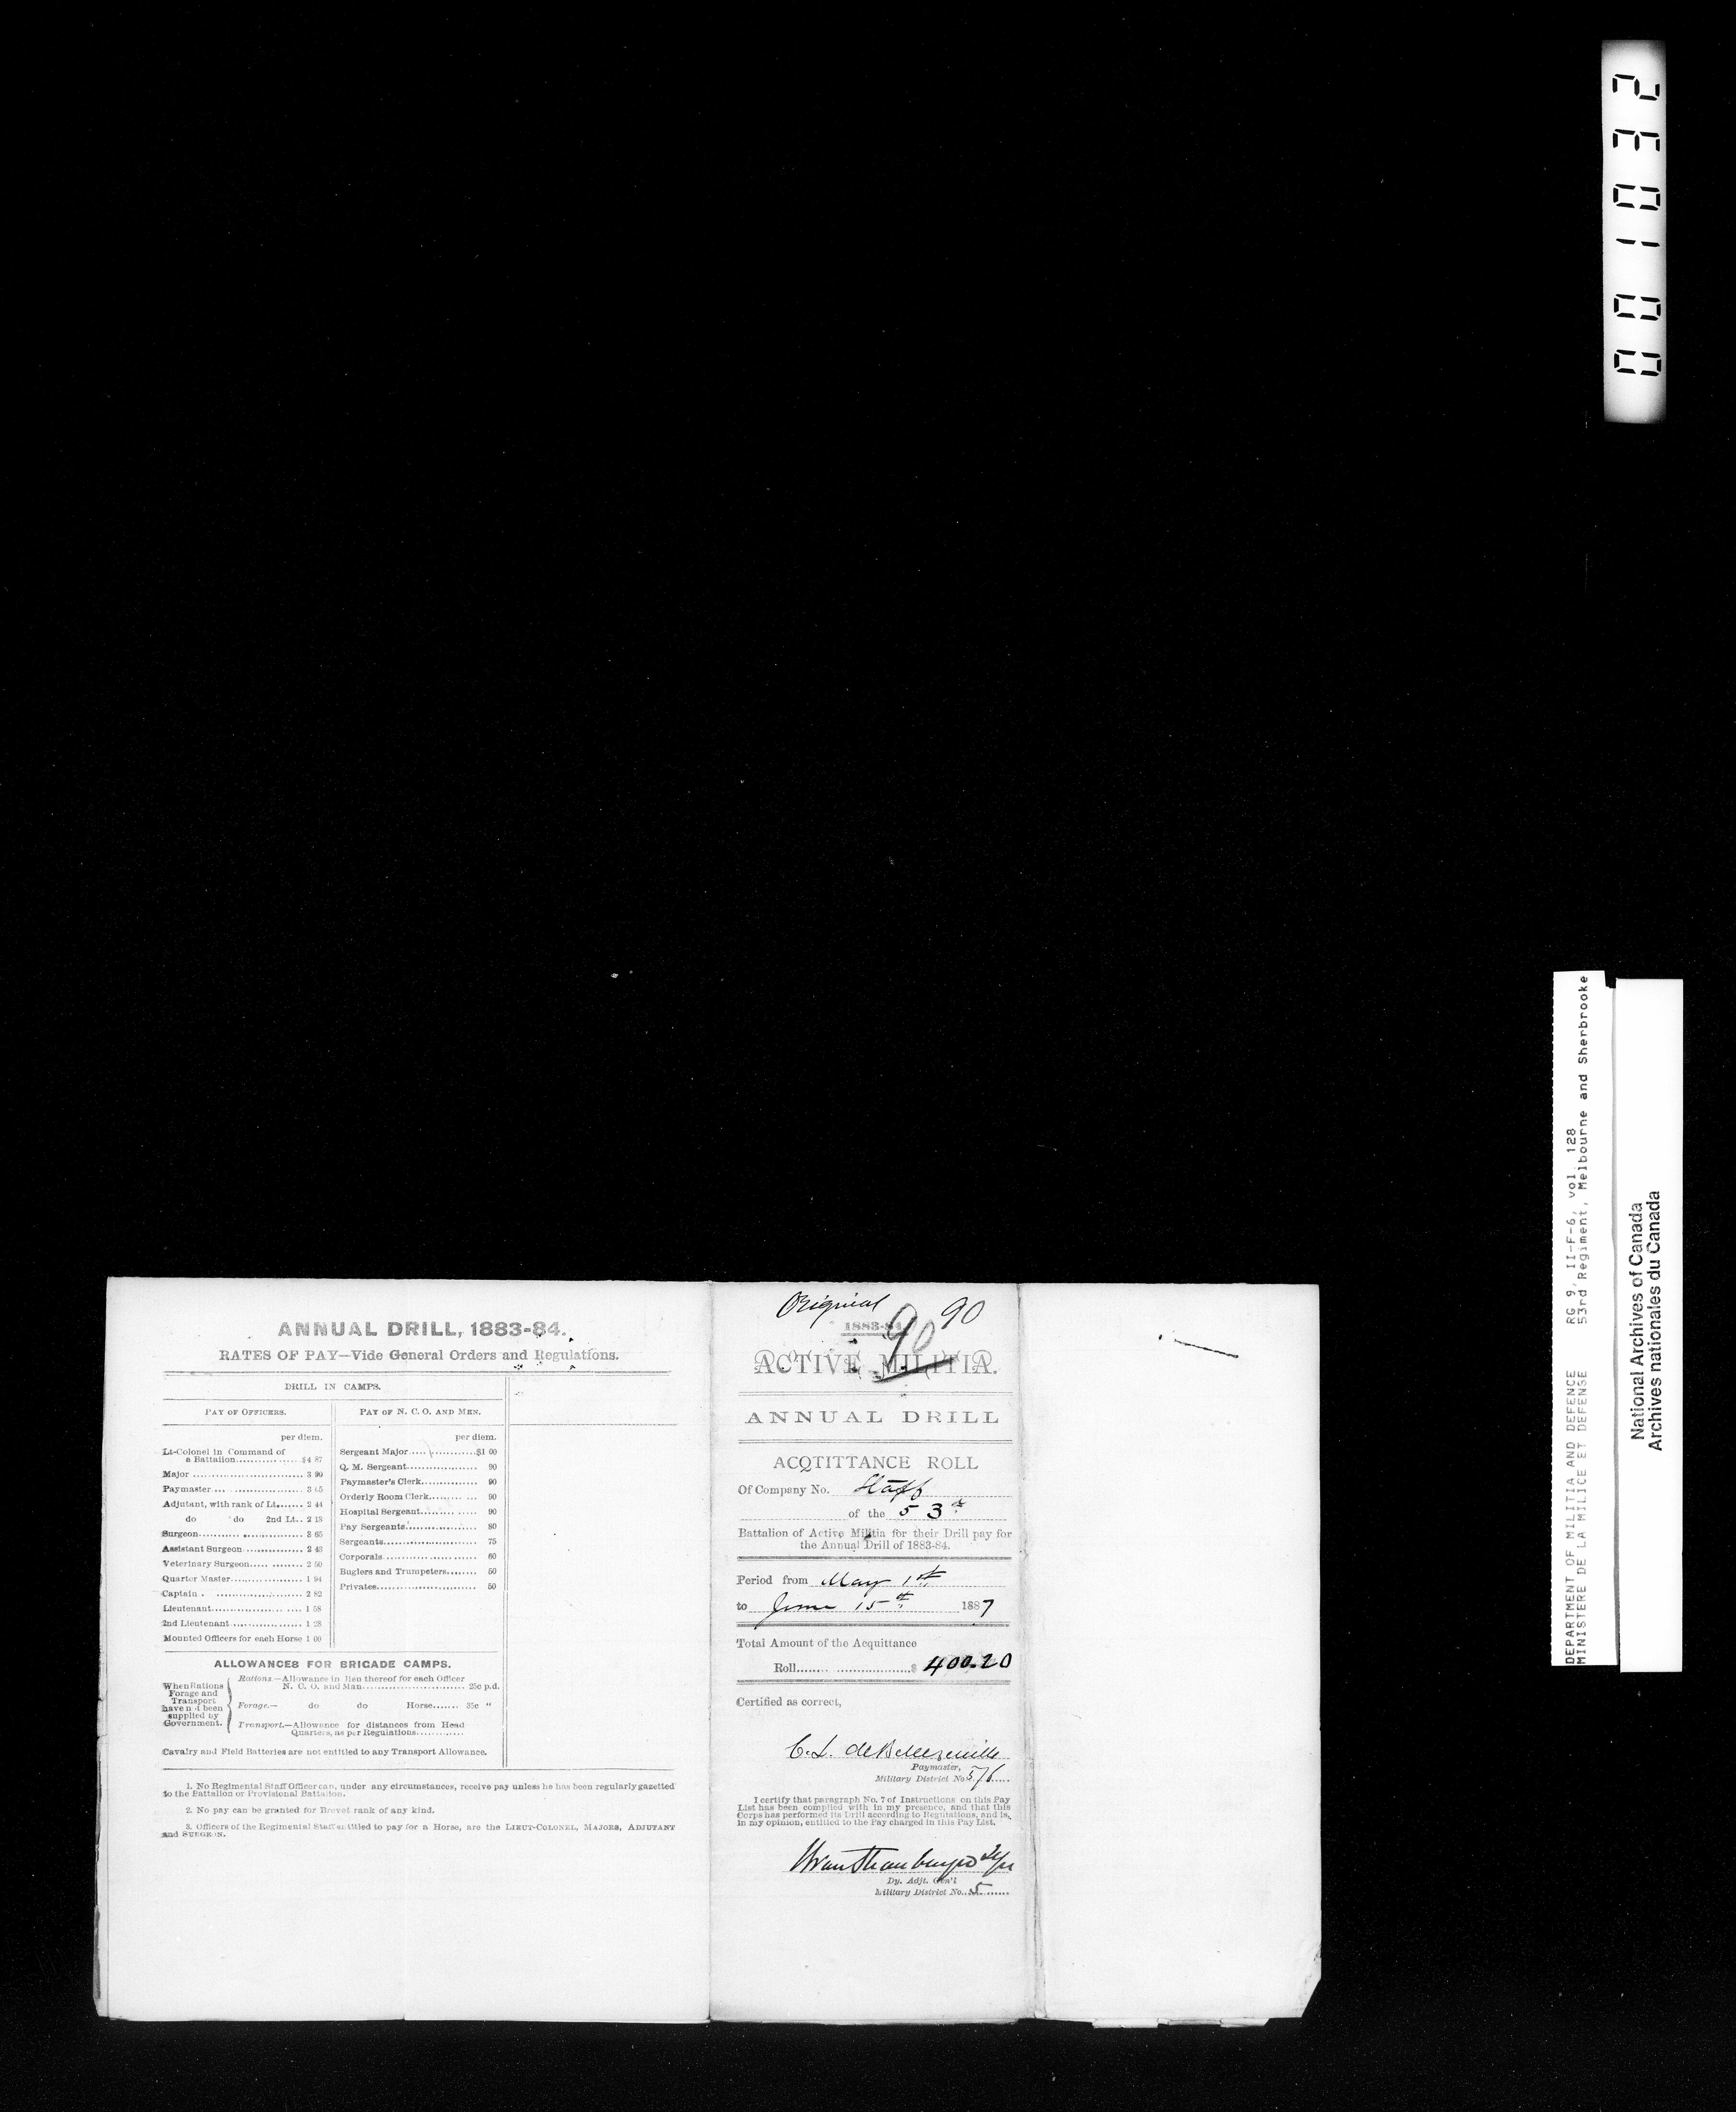 001032
DEPARTMENT OF MILITIA AND DEFENCE RG 9, II-F-6, vol. 128
MINISTERE DE LA MILICE ET DEFENSE 53rd Regiment, Melbourne and Sherbrooke
National Archives of Canada
Archives nationales du Canada
ANNUAL DRILL, 1883-84.
RATES OF PAY—Vide General Orders and Regulations.
DRILL IN CAMPS.
PAY OF OFFICERS.
per diem.
Lt-Colonel in Command of
a Battalion............... $4 87
Major ............................... 3 90
Paymaster.... ...................... 3 05
Adjutant, with rank of Lt....... 2 44
do do 2nd Lt.. 2 13
Surgeon............................. 3 65
Assistant Surgeon................ 2 43
Veterinary Surgeon..... ......... 2 50
Quarter Master.................... 1 94
Captain . ........................ 2 82
Lieutenant......................... 1 58
2nd Lieutenant ................... 1 28
Mounted Officers for each Horse 1 00
PAY OF N. C. O. AND MEN.
per diem.
Sergeant Major..... .............$1 00
Q. M. Sergeant................... 90
Paymaster's Clerk.............. 90
Orderly Room Clerk........ ... 90
Hospital Sergeant......... ...... 90
Pay Sergeants................... 80
Sergeants......................... 75
Corporals......................... 60
Buglers and Trumpeters....... 50
Privates........................... 50
ALLOWANCES FOR BRIGADE CAMPS.
When Rations
Forage and
Transport
have n t been
supplied by
Government.
Rations.—Allowance in lieu thereof for each Officer
N. C. O. and Man............................ 25c p.d.
Forage.— do do Horse....... 35c "
Transport.—Allowance for distances from Head
Quarters, as per Regulations.............
Cavalry and Field Batteries are not entitled to any Transport Allowance.
1. No Regimental Staff Officer can, under any circumstances, receive pay unless he has been regularly gazetted
to the Battalion or Provisional Battalion.
2. No pay can be granted for Brevet rank of any kind.
3. Officers of the Regimental Staff entitled to pay for a Horse, are the LIEUT-COLONEL, MAJORS, ADJUTANT
and SURGEON.
Original 90
1883-84.
90
ACTIVE MILITIA.
ANNUAL DRILL
ACQTITTANCE ROLL
Of Company No. Staff
of the 53rd
Battalion of Active Militia for their Drill pay for
the Annual Drill of 1883-84.
Period from May 1st
to June 15th 1887
Total Amount of the Acquittance
Roll....... .......................$ 400.20
Certified as correct,
C. L. de Bellefeuille
Paymaster,
Military District No 5/6.....
I certify that paragraph No. 7 of Instructions on this Pay
List has been complied with in my presence, and that this
Corps has performed its Drill according to Regulations, and is,
in my opinion, entitled to the Pay charged in this Pay List.
Dy. Adjt. Gen'l
Military District No. 5